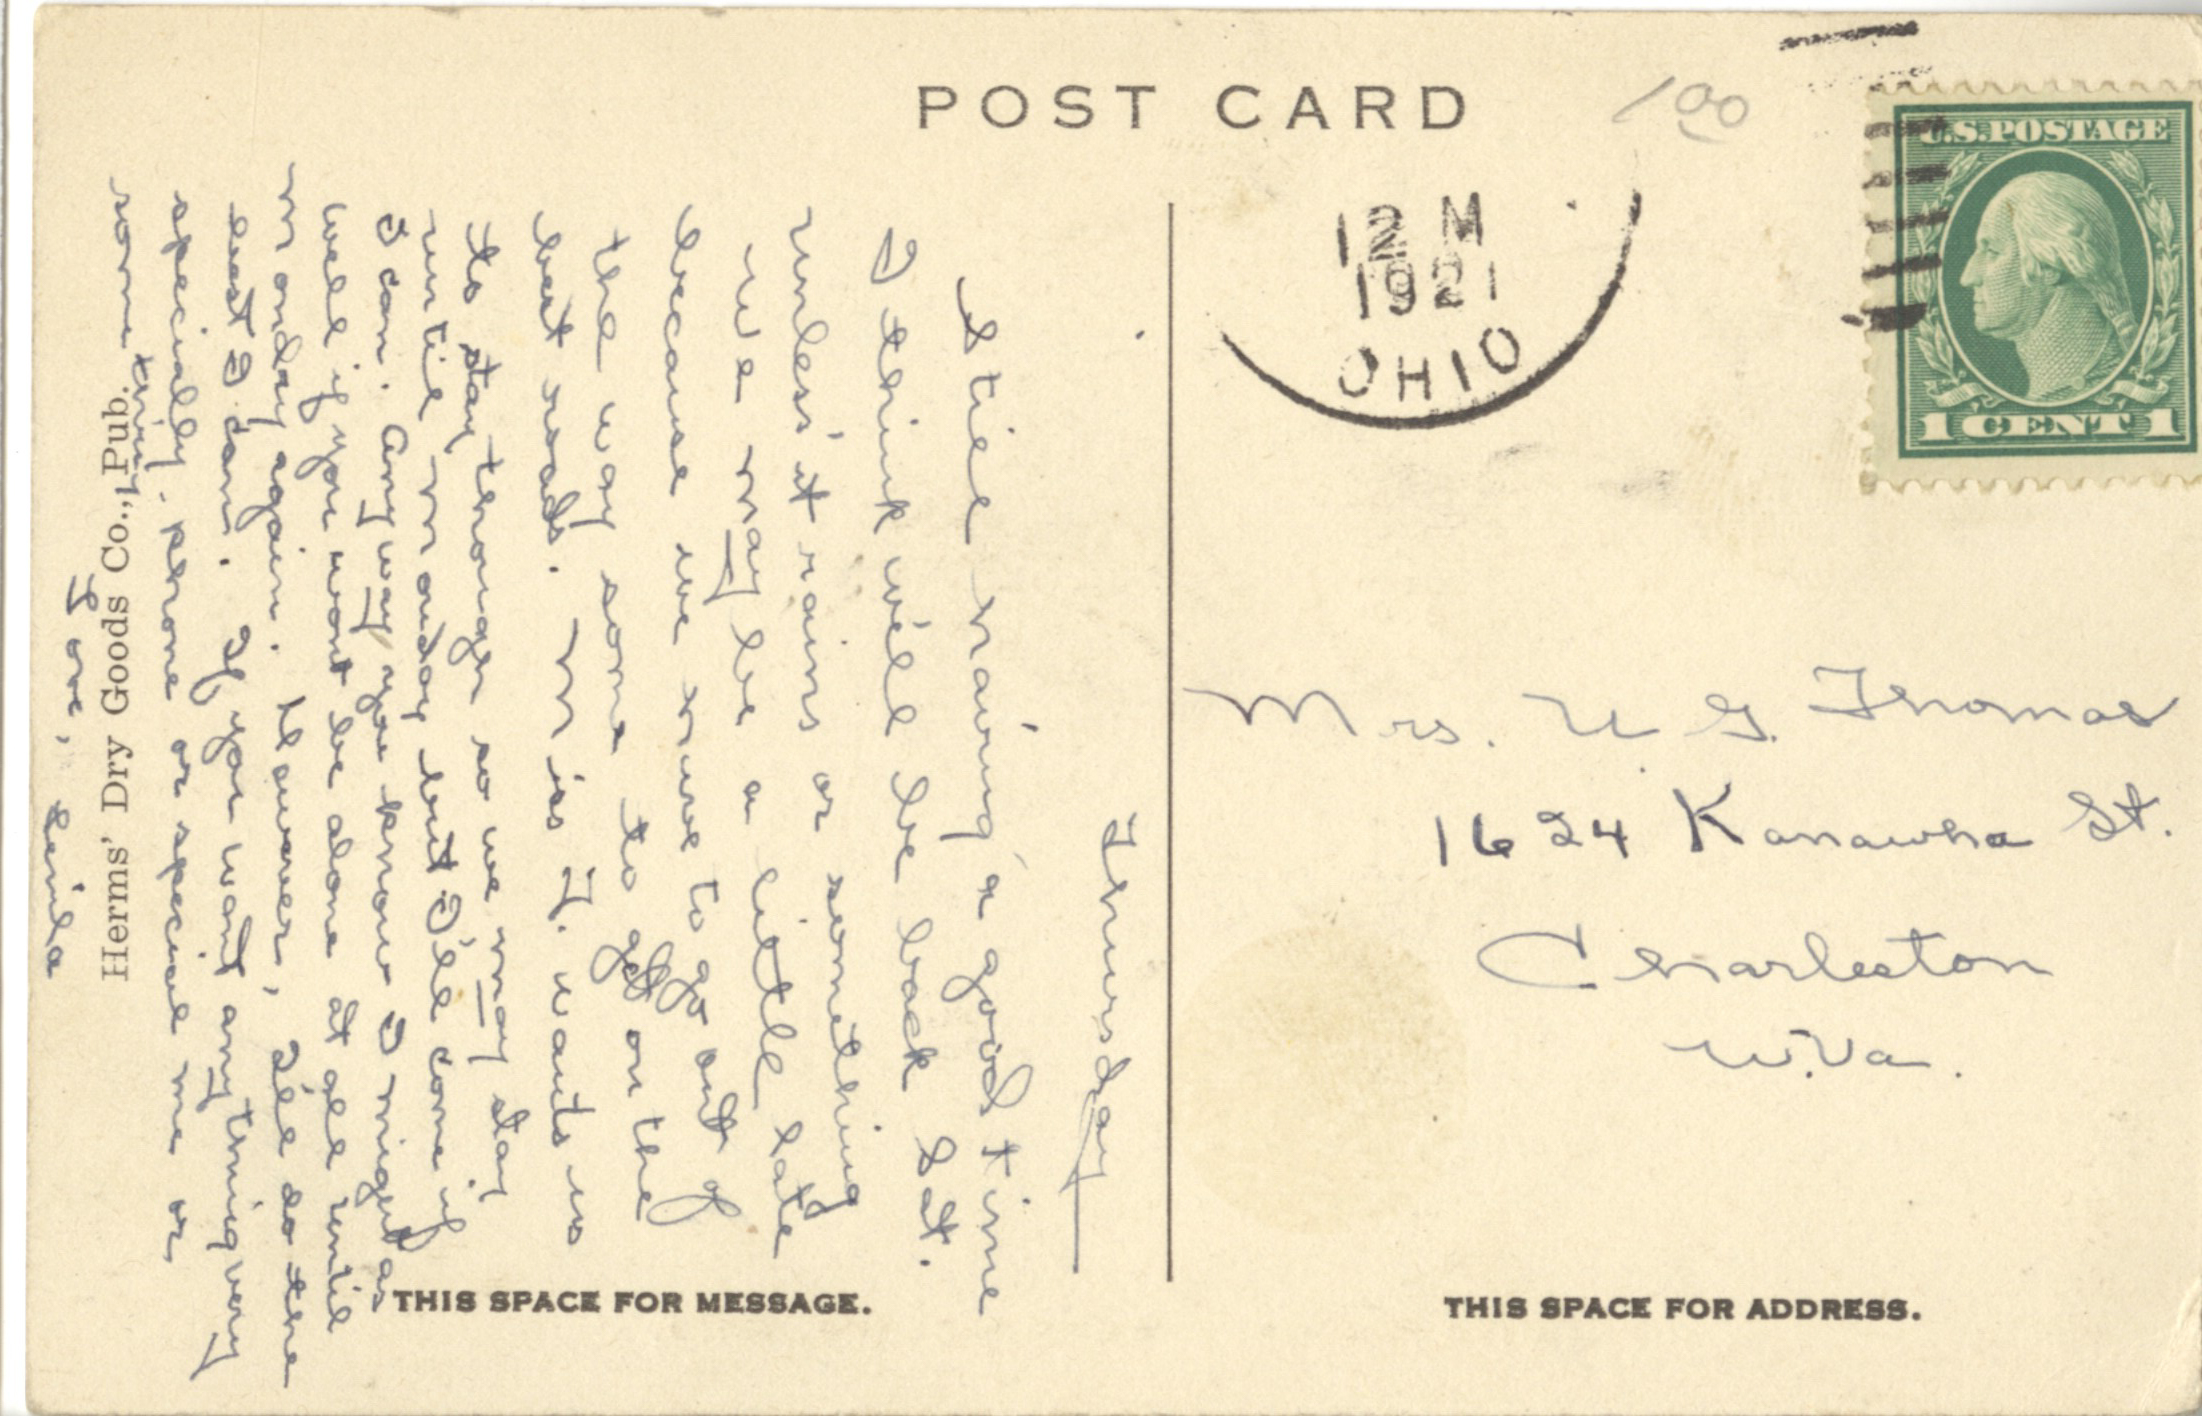 POST CARD
100
U.S. POSTAGE
1 CENT 1
12 M
1921
OHIO
Thursday
Still having a good time
I think we'll be back Sat.
unless it rains or something
we may be a little late
because we have to go out of
the way some to get on the
best roads. Miss F. wants us
to stay though so we may stay
until monday but I'll come if
I can. Any way you know I might as
well if you wont be alone at all until
monday again. However, I'll do the
best I can. If you want anything very
specially phone or special me or
some thing.
Love,
Mrs. U G. Thomas
1624 Kanawha St.
Charleston
W.Va.
Herms' Dry Goods Co., Pub.
THIS SPACE FOR MESSAGE.
THIS SPACE FOR ADDRESS.